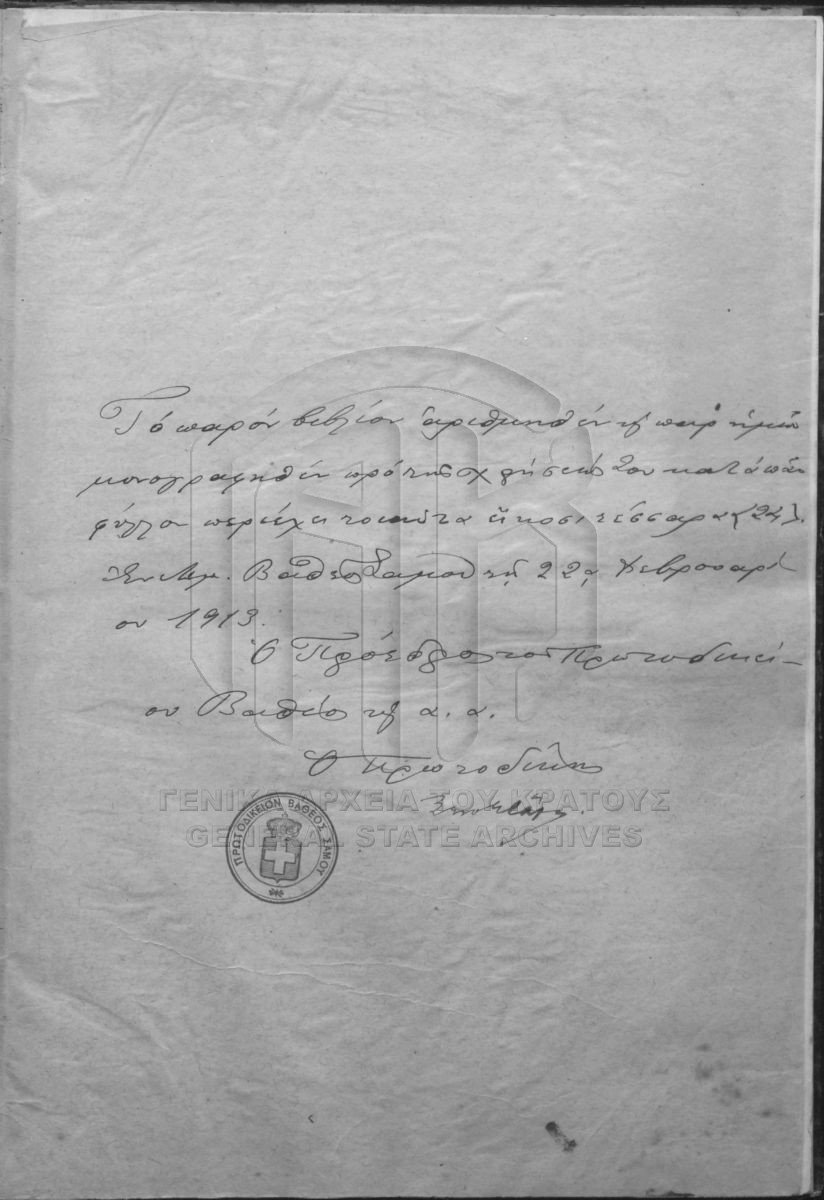 Τό παρόν βιβλίον ἀριθμηθέν κ παρ' ἡμῶν
μονογραφηθέν πρό τῆς χρήσεώς του κατά πᾶν
φύλλον περιέχει τοιαῦτα εἴκοσι τέσσαρα (24).
Ἐν Λιμ. Βαθέος Σάμου τῇ 22ᾳ Φεβρουαρί-
ου 1913.
Ὁ Πρόεδρος τοῦ Πρωτοδικεί-
ου Βαθέος κ α. α.
Ὁ Πρωτοδίκης
ΠΡΩΤΟΔΙΚΕΙΟΝ ΒΑΘΕΟΣ ΣΑΜΟΥ
ΓΕΝΙΚΑ ΑΡΧΕΙΑ ΤΟΥ ΚΡΑΤΟΥΣ
GENERAL STATE ARCHIVES